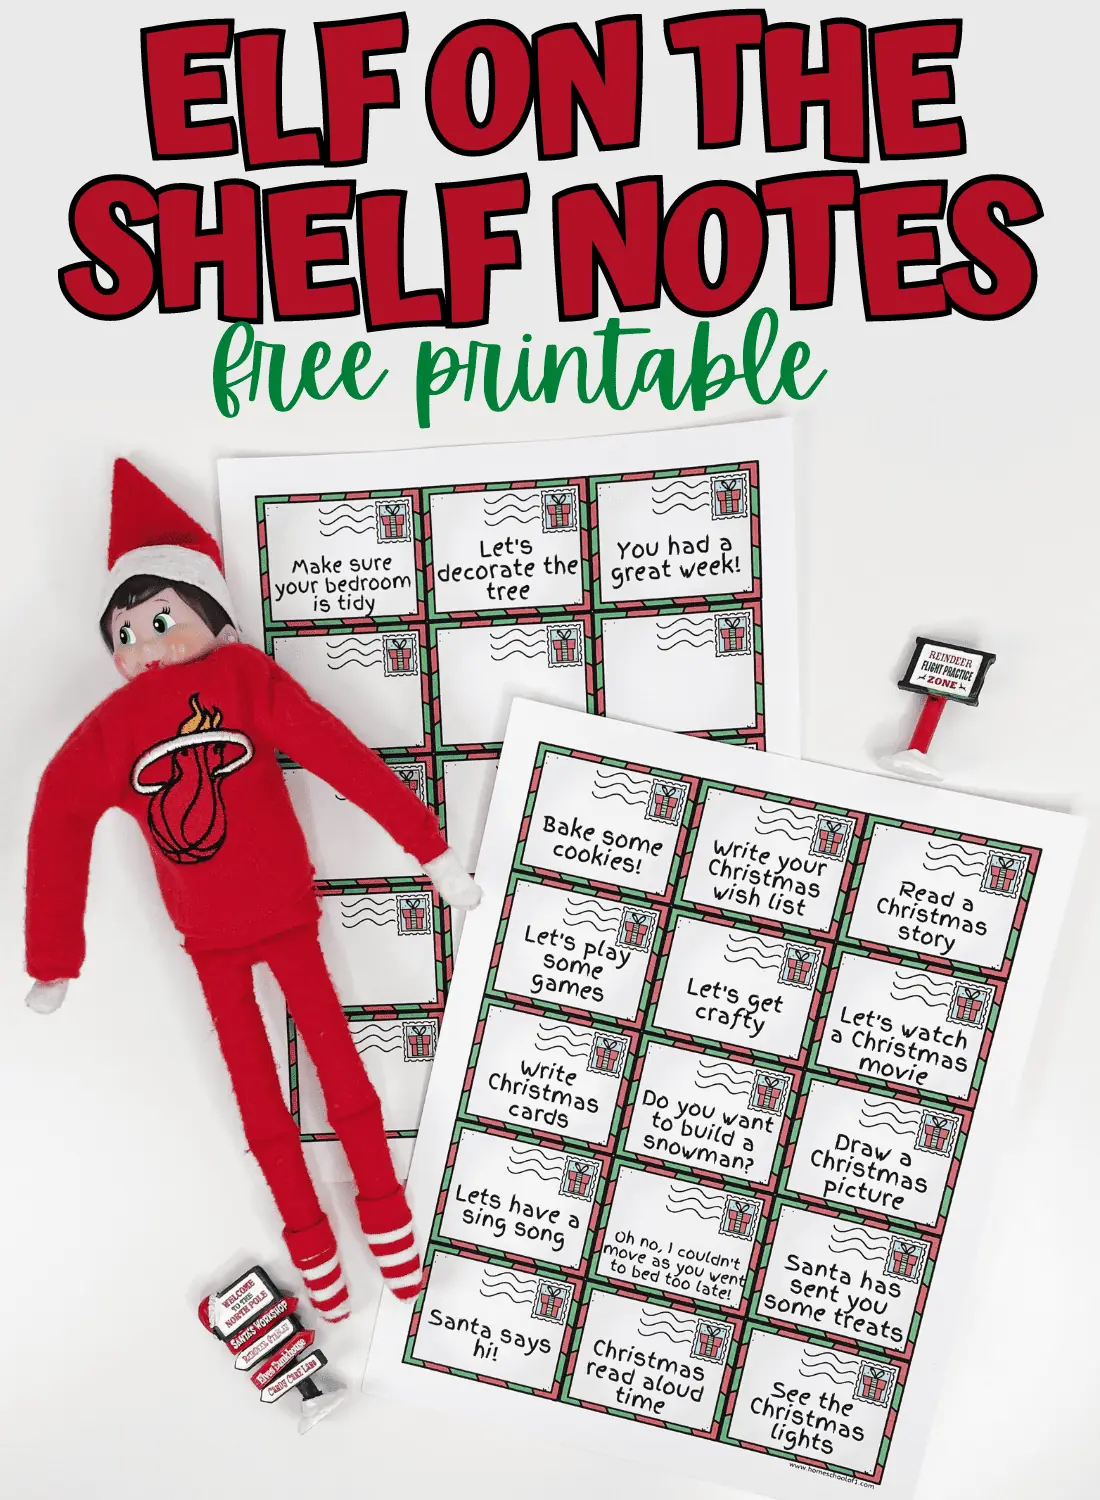 ELF ON THE
SHELF NOTES
free printable
Make sure
your bedroom
is tidy
Let's
decorate the
tree
You had a
great week!
REINDEER
FLIGHT PRACTICE
ZONE
Bake some
cookies!
Write your
Christmas
wish list
Read a
Christmas
story
Let's play
some
games
Let's get
crafty
Let's watch
a Christmas
movie
Write
Christmas
cards
Do you want
to build a
snowman?
Draw a
Christmas
picture
Lets have a
sing song
Oh no, I couldn't
move as you went
to bed too late!
Santa has
sent you
some treats
Santa says
hi!
Christmas
read aloud
time
See the
Christmas
lights
www.homeschoolof1.com
WELCOME
TO THE
NORTH POLE
SANTA'S WORKSHOP
Elves Bunkhouse
CANDY CANE LANE